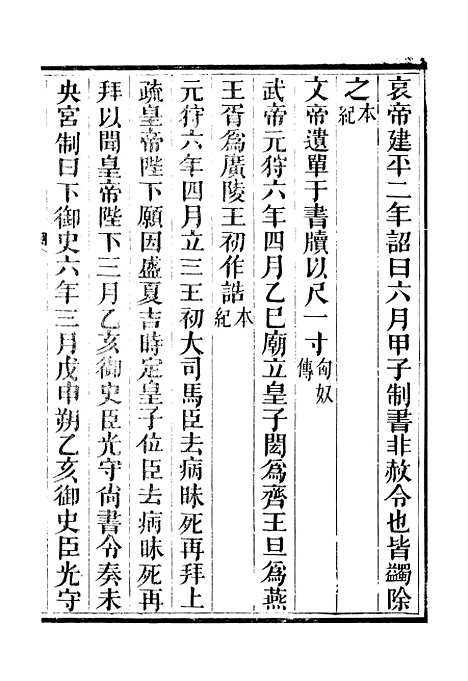 哀帝建平二年詔曰六月甲子制書非赦令也皆蠲除
之本紀
文帝遺單于書牘以尺一寸匈奴傳
武帝元狩六年四月乙巳廟立皇子閎爲齊王旦爲燕
王胥爲廣陵王初作誥本紀
元狩六年四月立三王初大司馬臣去病昧死再拜上
疏皇帝陛下願因盛夏吉時定皇子位臣去病昧死再
拜以聞皇帝陛下三月乙亥御史臣光守尚書令奏未
央宮制曰下御史六年三月戊申朔乙亥御史臣光守